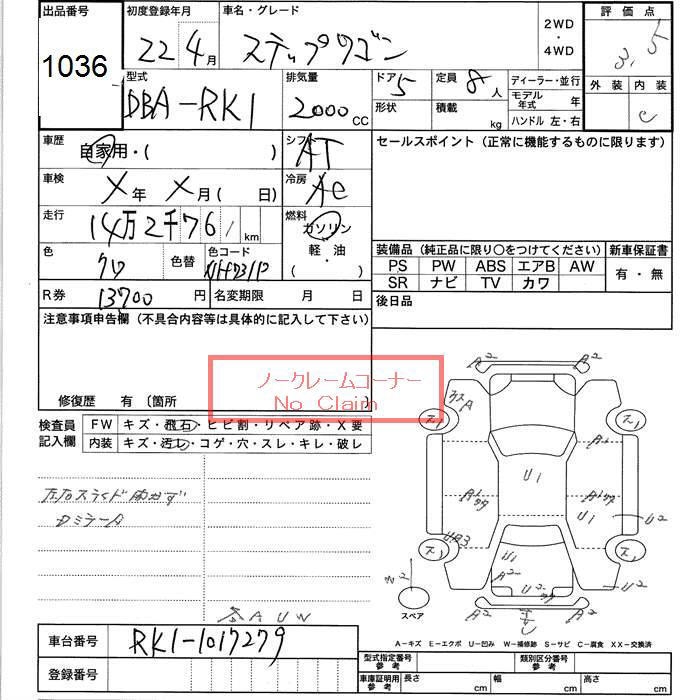 出品番号 初度登録年月 車名・グレード 2WD・4WD 評価点
1036 22 4月 ステップワゴン 3.5
外装 内装
C
型式 排気量 ドア 5 定員 8人 ディーラー・並行
DBA-RK1 2000CC 形状 積載 kg モデル年式 年
ハンドル 左・右
車歴 自家用・( ) シフト AT セールスポイント (正常に機能するものに限ります)
車検 X年 X月 ( 日) 冷房 AC
走行 14万2千761km 燃料 ガソリン
軽・油
( ・ )
色 クロ 色替 色コード
装備品 (純正品に限り○をつけてください) 新車保証書
PS PW ABS エアB AW 有・無
SR ナビ TV カワ
R券 13700円 名変期限 月 日 後日品
注意事項申告欄 (不具合内容等は具体的に記入して下さい)
ノークレームコーナー
No Claim
修復歴 有 〔箇所 〕
検査員記入欄 FW キズ・飛石・ヒビ割・リペア跡・X要
内装 キズ・汚れ・コゲ・穴・スレ・キレ・破レ
左右スライド
A2 A2
A
A1
U1
A1 A1
U1 U2
U1
A2 U2
U2
スペア
A U W
A-キズ E-エクボ U-凹み W-補修跡 S-サビ C-腐食 XX-交換済
車台番号 RK1-1017279
登録番号
型式指定番号 参考 類別区分番号 参考
車庫証明用 参考 長さ cm 幅 cm 高さ cm